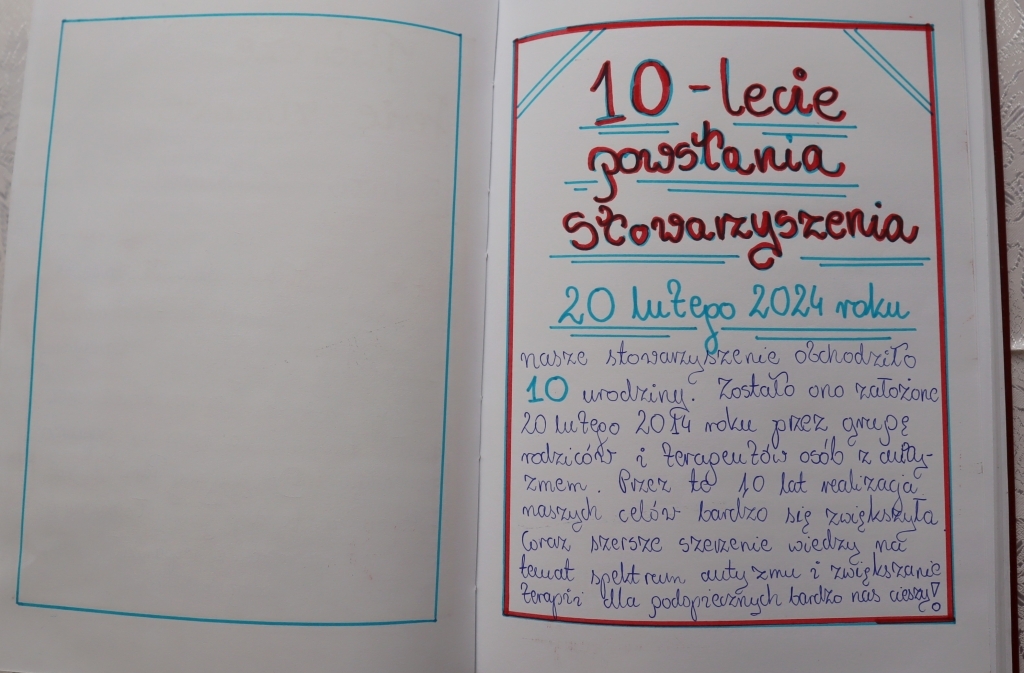 10-lecie
powstania
stowarzyszenia
20 lutego 2024 roku
nasze stowarzyszenie obchodziło
10 urodziny. Zostało ono założone
20 lutego 2014 roku przez grupę
rodziców i terapeutów osób z auty-
zmem. Przez te 10 lat realizacja
naszych celów bardzo się zwiększyła.
Coraz szersze szerzenie wiedzy na
temat spektrum autyzmu i zwiększanie
terapii dla podopiecznych bardzo nas cieszą!